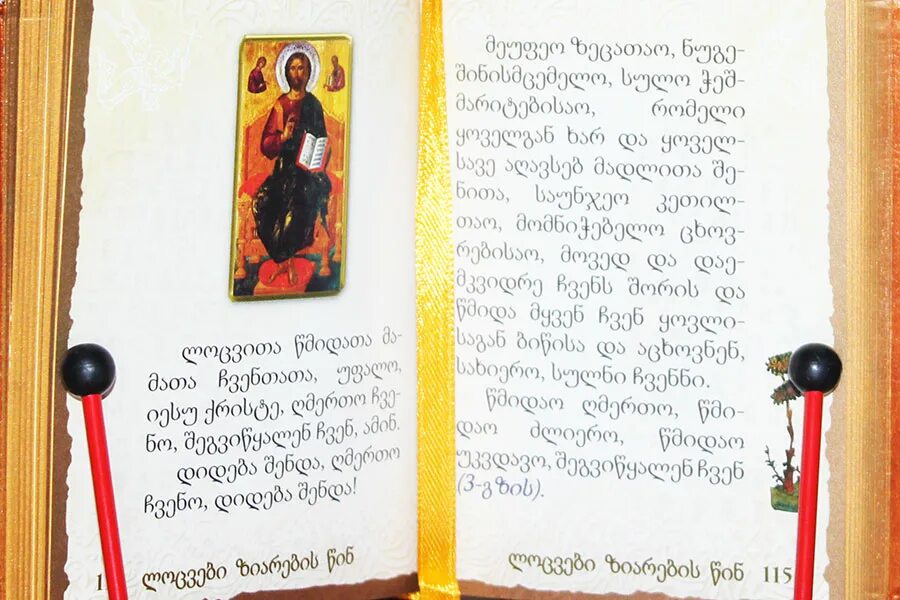 ლოცვითა წმიდათა მა-
მათა ჩვენთათა, უფალო,
იესუ ქრისტე, ღმერთო ჩვე-
ნო, შეგვიწყალენ ჩვენ, ამინ.
დიდება შენდა, ღმერთო
ჩვენო, დიდება შენდა!
ლოცვები ზიარების წინ
მეუფეო ზეცათაო, ნუგე-
შინისმცემელო, სულო ჭეშ-
მარიტებისაო, რომელი
ყოველგან ხარ და ყოველ-
სავე აღავსებ მადლითა შე-
ნითა, საუნჯეო კეთილ-
თაო, მომნიჭებელო ცხოვ-
რებისაო, მოვედ და დაე-
მკვიდრე ჩვენს შორის და
წმიდა მყვენ ჩვენ ყოვლი-
საგან ბიწისა და აცხოვნენ,
სახიერო, სულნი ჩვენნი.
წმიდაო ღმერთო, წმი-
დაო ძლიერო, წმიდაო
უკვდავო, შეგვიწყალენ ჩვენ
(3-გზის).
ლოცვები ზიარების წინ 115